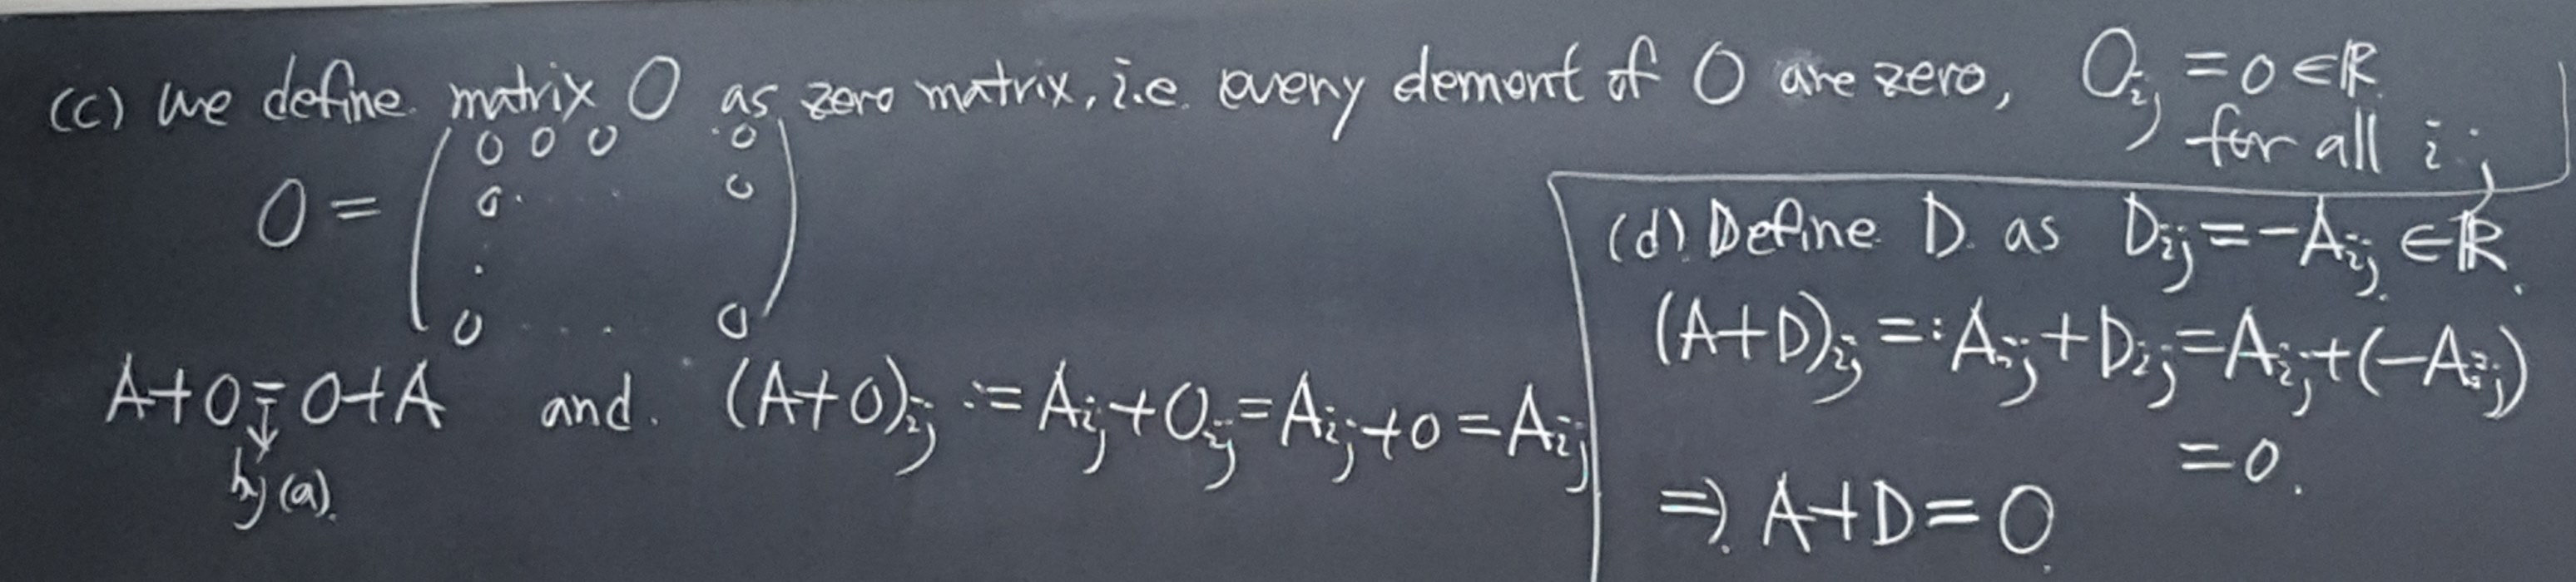 (c) we define matrix O as zero matrix, i.e. every element of O are zero, O_ij = 0 ∈ ℝ
for all i j
O = ( 0 0 0 0
0 . . . 0
.
0 . . . 0 )
A+O = O+A and. (A+O)_ij := A_ij + O_ij = A_ij + 0 = A_ij
by (a).
(d) Define D as D_ij = -A_ij ∈ ℝ.
(A+D)_ij =: A_ij + D_ij = A_ij + (-A_ij)
= 0.
⇒ A+D = O